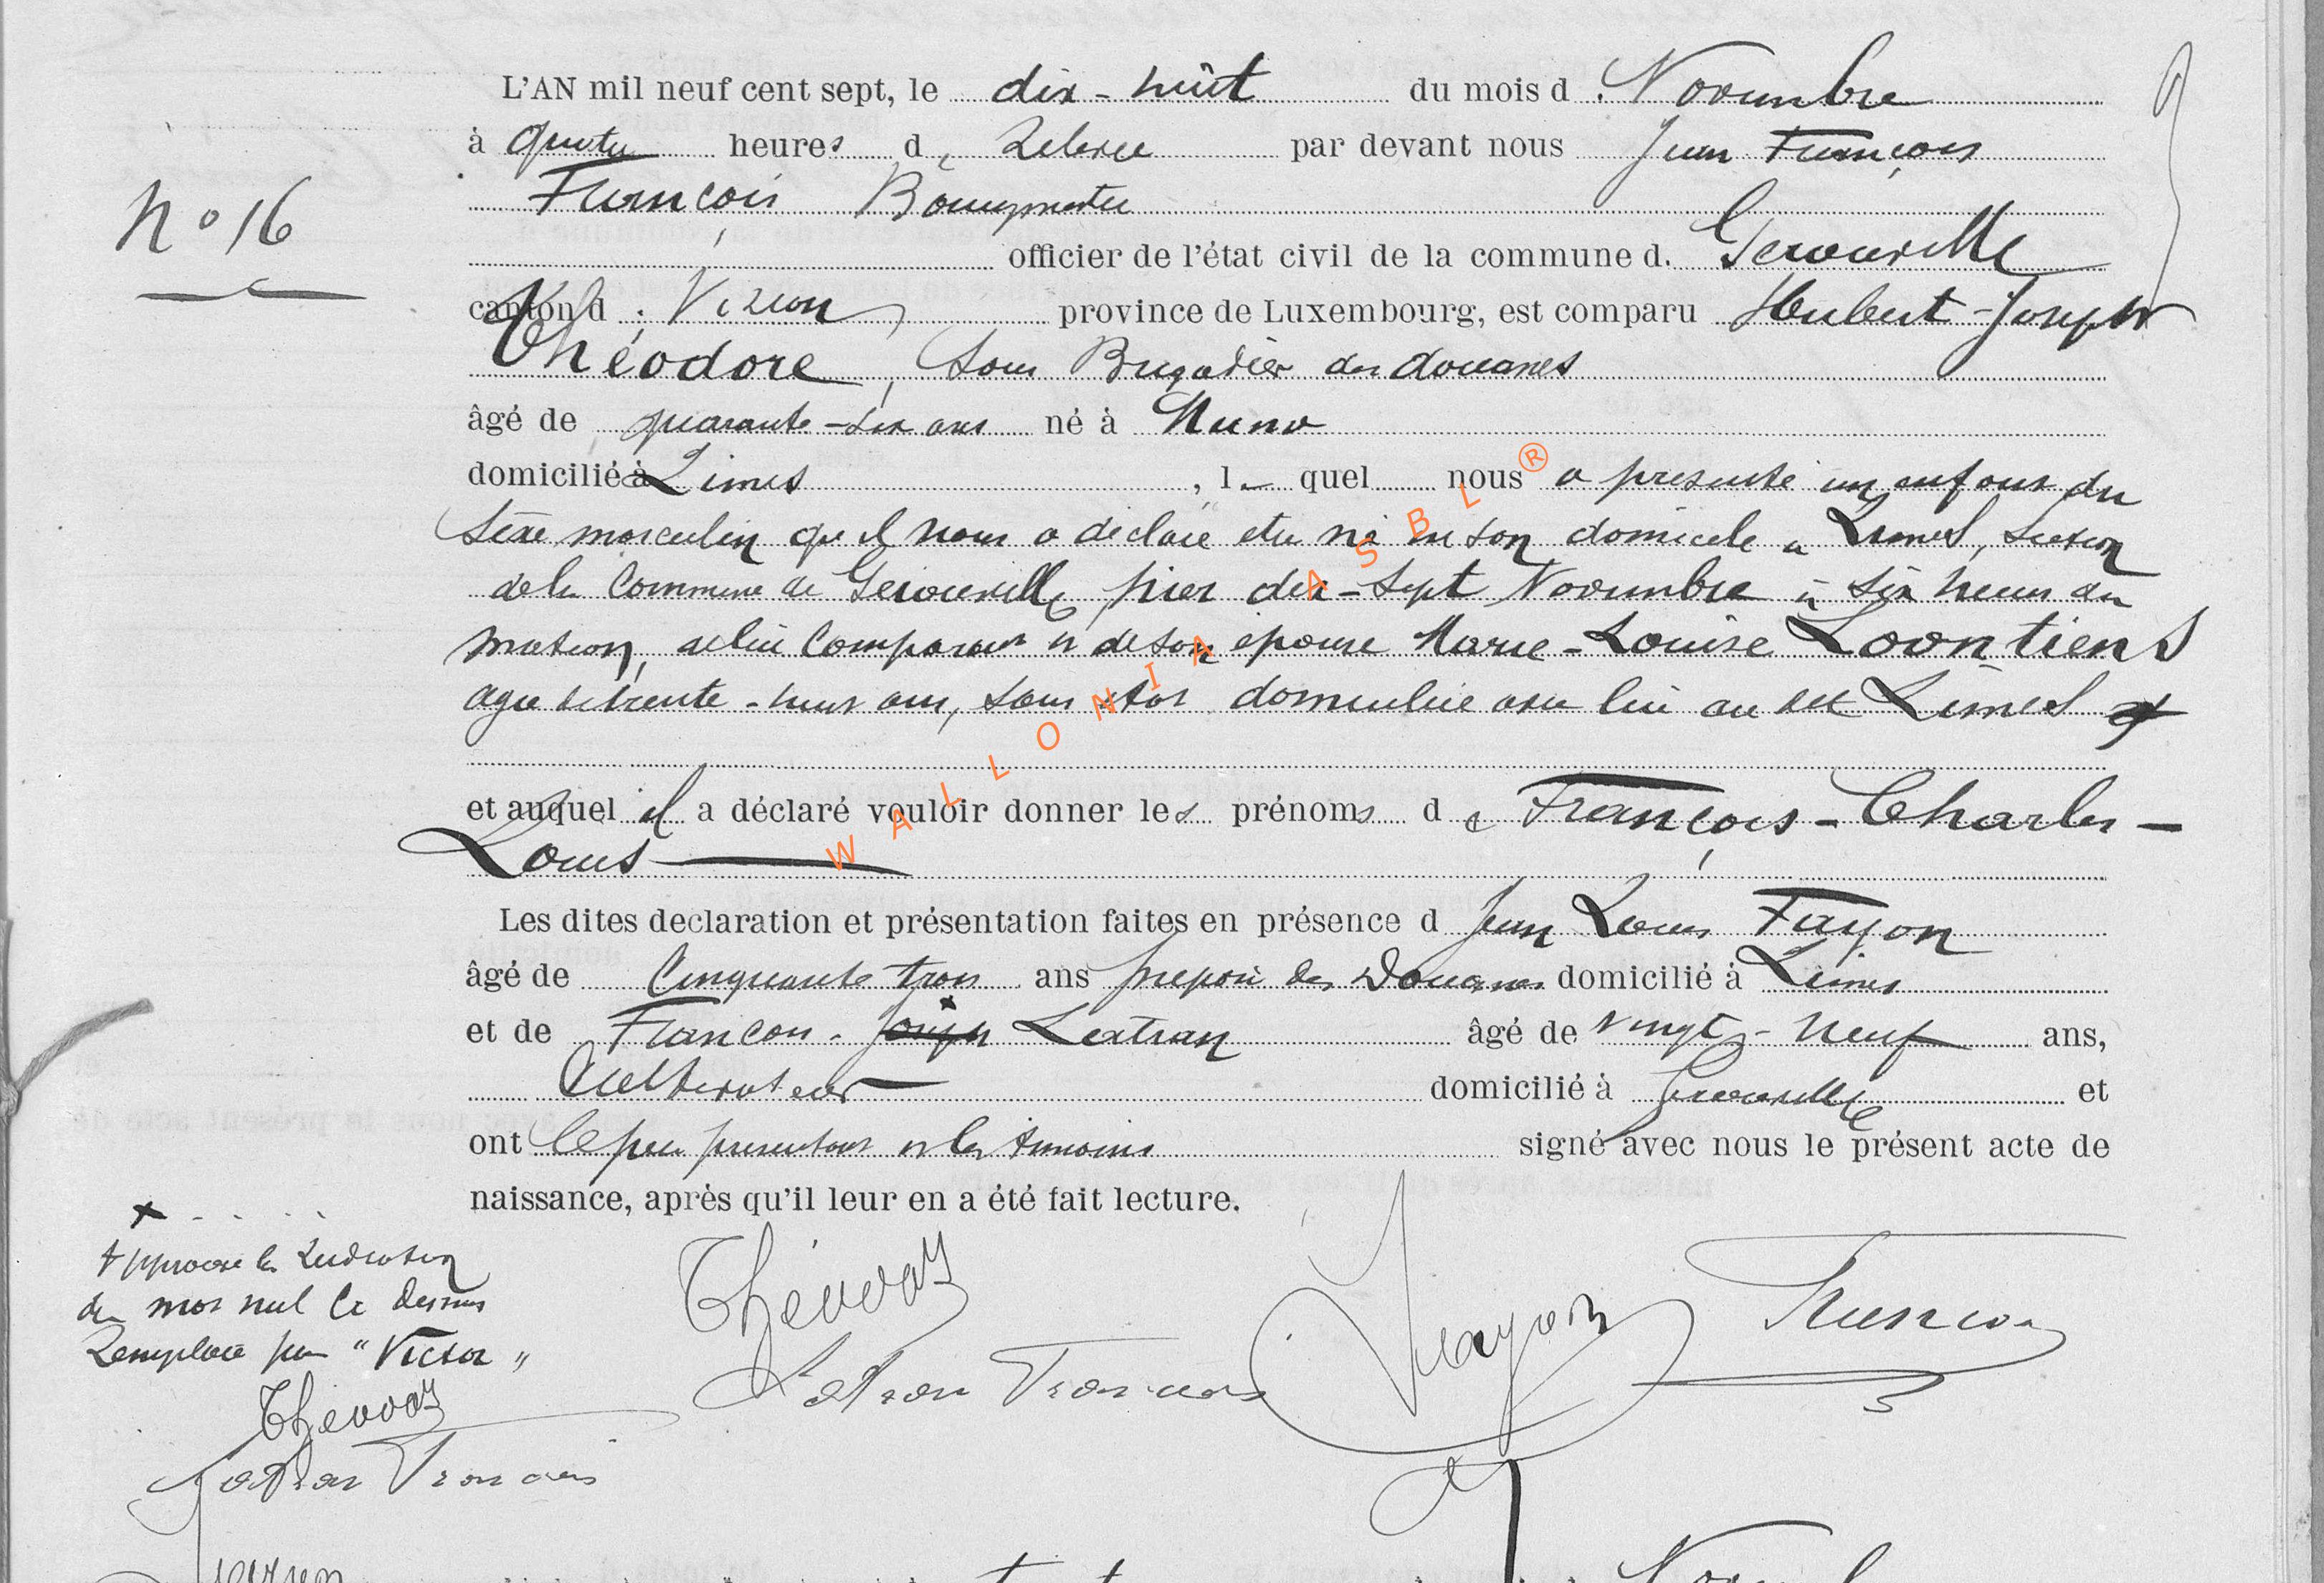 L'AN mil neuf cent sept, le dix-huit du mois d. Novembre
à quatre heures d, Relevée par devant nous Jean François
François Bourgmestre
N° 16
officier de l'état civil de la commune d. Gerouville
canton d. Virton province de Luxembourg, est comparu Hubert-Joseph
Théodore, Sous Brigadier des douanes
âgé de quarante-six ans né à Muno
domicilié à Limes, le quel nous a présenté un enfant du
sexe masculin qu'il nous a déclaré etre né en son domicile a Limes, section
de la Commune de Gerouville, hier dix-sept Novembre à six heures du
matin, de lui Comparant et de son épouse Marie-Louise Loontiens
agée de trente-huit ans, sans etat domiciliée avec lui au dit Limes
et auquel il a déclaré vouloir donner les prénoms de François-Charles-
Louis
Les dites declaration et présentation faites en présence d Jean Louis Fayon
âgé de Cinquante trois ans préposé des Douanes domicilié à Limes
et de François-Joseph Latran âgé de vingt-neuf ans,
Cultivateur domicilié à Gerouville et
ont le père présentant et les témoins signé avec nous le présent acte de
naissance, après qu'il leur en a été fait lecture.
x
Approuvé la Radiation
du mot nul Ci dessus
Remplacé par "Victor"
Théodor
Latran François
Fayon
Théodor
Latran François
Fayon
François
WALLONIA ASBL ®